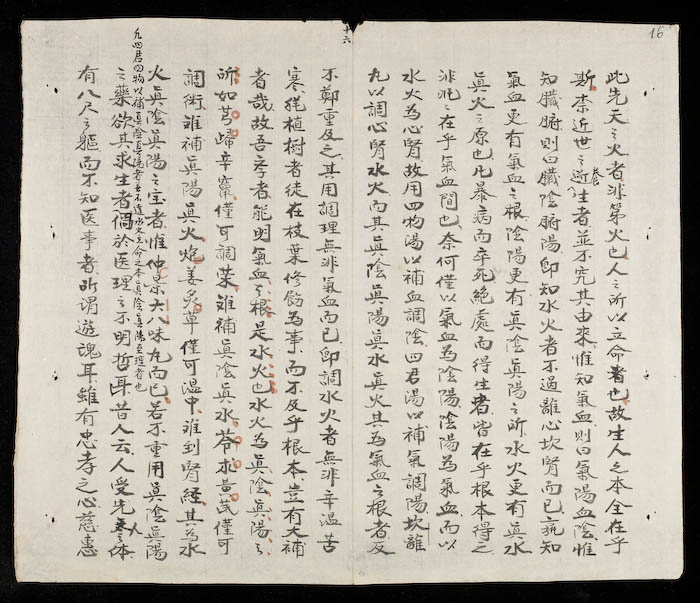 16
此先天之火者非第火也人之所以立命者也故生人之本全在乎
斯柰近世之近養生者並不究其由來惟知氣血則曰氣陽血陰惟
知臟腑則曰臟陰腑陽即知水火者不過離心坎腎而已豈知
氣血更有氣血之根陰陽更有真陰真陽之所水火更有真水
真火之原也凡暴病而卒死絕處而得生者皆在乎根本得之
非此之在乎氣血間也奈何僅以氣血為陰陽陰陽為氣血而以
水火為心腎故用四物湯以補血調陰四君湯以補氣調陽坎離
丸以調心腎水火而其真陰真陽真水真火其為氣血之根者反
十六
不鄭重及之其用調理無非氣血而已即調水火者無非辛溫苦
寒絕植樹者徒在枝葉修飾為事而不及乎根本豈有大補
者哉故吾序者能明氣血之根是水火也水火為真陰真陽之
所如芎歸辛竄僅可調榮难補真陰真水芩朮黃芪僅可
調衛难補真陽真火炮姜炙草僅可溫中难到腎經其為水
火真陰真陽之宝者惟仲景六八味丸而已若不重用真陰真陽
凡四君四物以補真陰真陽者並不達水火立命之本真陰真陽至理者也
之藥欲其求生者徜於医理之不明哲耳昔人云人受先人之体
有八尺之軀而不知医事者所謂遊魂耳雖有忠孝之心慈惠